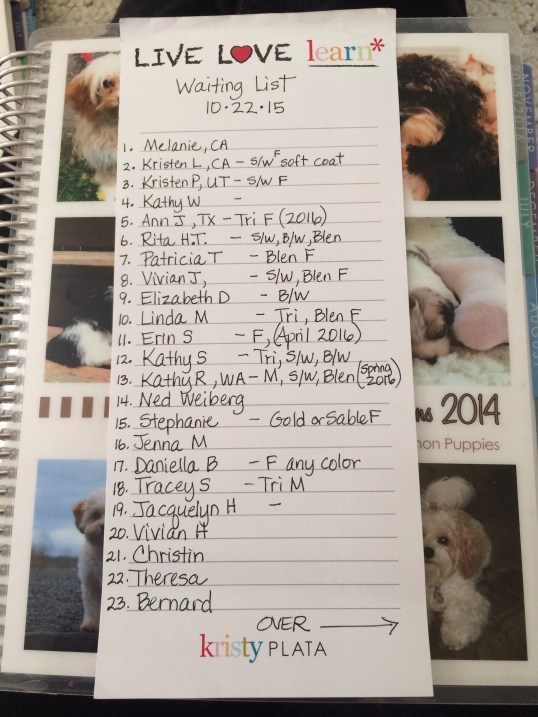 LIVE LOVE learn*
Waiting List
10·22·15
1. Melanie, CA
2. Kristen L, CA - S/W F soft coat
3. Kristen P, UT - S/W F
4. Kathy W -
5. Ann J, TX - Tri F (2016)
6. Rita H.T. - S/W, B/W, Blen
7. Patricia T - Blen F
8. Vivian J, - S/W, Blen F
9. Elizabeth D - B/W
10. Linda M - Tri, Blen F
11. Erin S - F, (April 2016)
12. Kathy S - Tri, S/W, B/W
13. Kathy R, WA - M, S/W, Blen (Spring 2016)
14. Ned Weiberg
15. Stephanie - Gold or Sable F
16. Jenna M
17. Daniella B - F any color
18. Tracey S - Tri M
19. Jacquelyn H -
20. Vivian H
21. Christin
22. Theresa
23. Bernard
OVER →
kristy PLATA
2014
Puppies
NOVEMBER
JULY
AUGUST